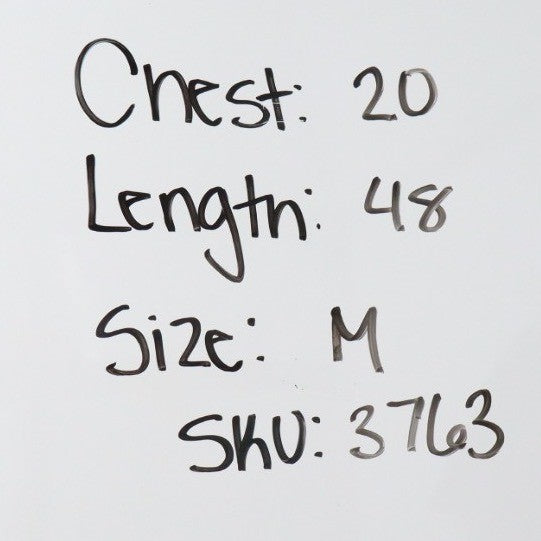 Chest: 20
Length: 48
Size: M
SKU: 3763